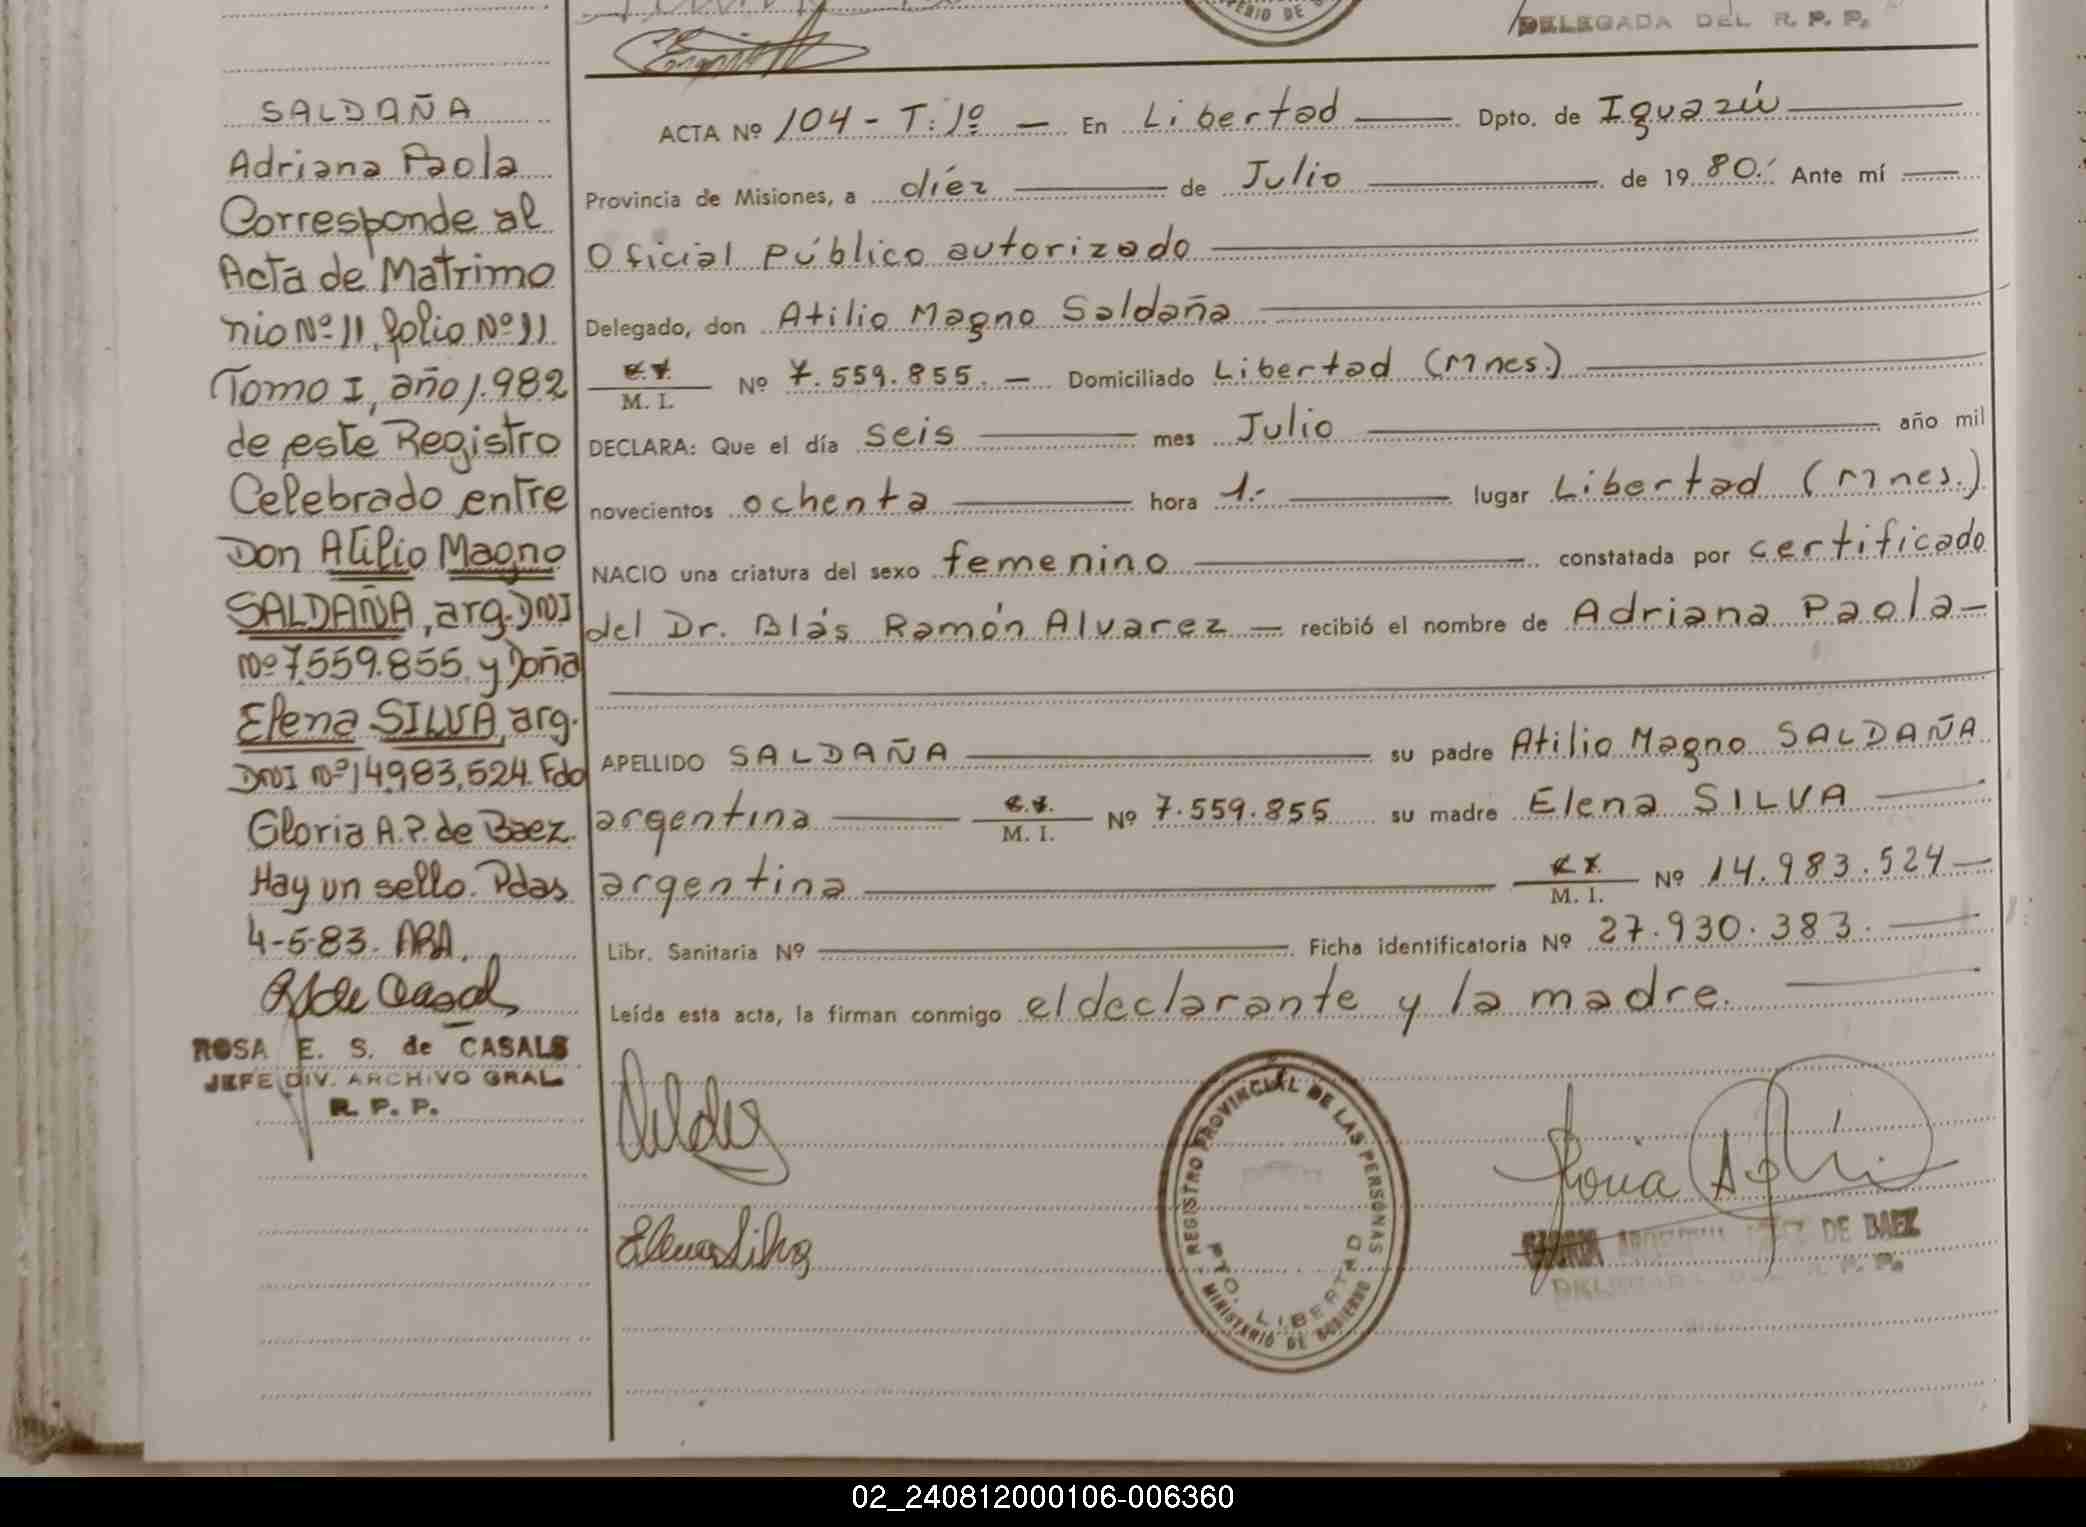 DELEGADA DEL R. P. P.
SALDAÑA
Adriana Paola
Corresponde al
Acta de Matrimo
nio Nº 11, folio Nº 11
Tomo I, año 1.982
de este Registro
Celebrado entre
Don Atilio Magno
SALDAÑA, arg. DNI
Nº 7.559.855 y Doña
Elena SILVA, arg.
DNI Nº 14.983.524. Fdo
Gloria A. P. de Baez.
Hay un sello. Pdas
4-5-83. ABA.
ROSA E. S. de CASALS
JEFE DIV. ARCHIVO GRAL.
R. P. P.
ACTA Nº 104 - T: 1º — En Libertad Dpto. de Iguazú
Provincia de Misiones, a diez de Julio de 19 80.- Ante mí
Oficial público autorizado
Delegado, don Atilio Magno Saldaña
M. I. Nº 7.559.855. — Domiciliado Libertad (Mnes.)
DECLARA: Que el día seis mes Julio año mil
novecientos ochenta hora 1.- lugar Libertad (Mnes.)
NACIO una criatura del sexo femenino constatada por certificado
del Dr. Blás Ramón Alvarez — recibió el nombre de Adriana Paola —
APELLIDO SALDAÑA su padre Atilio Magno SALDAÑA
argentina M. I. Nº 7.559.855 su madre Elena SILVA
argentina M. I. Nº 14.983.524 —
Libr. Sanitaria Nº Ficha identificatoria Nº 27.930.383.
Leída esta acta, la firman conmigo el declarante y la madre.
Elena Silva
REGISTRO PROVINCIAL DE LAS PERSONAS
PTO. LIBERTAD
MINISTERIO DE GOBIERNO
DE BAEZ
02_240812000106-006360